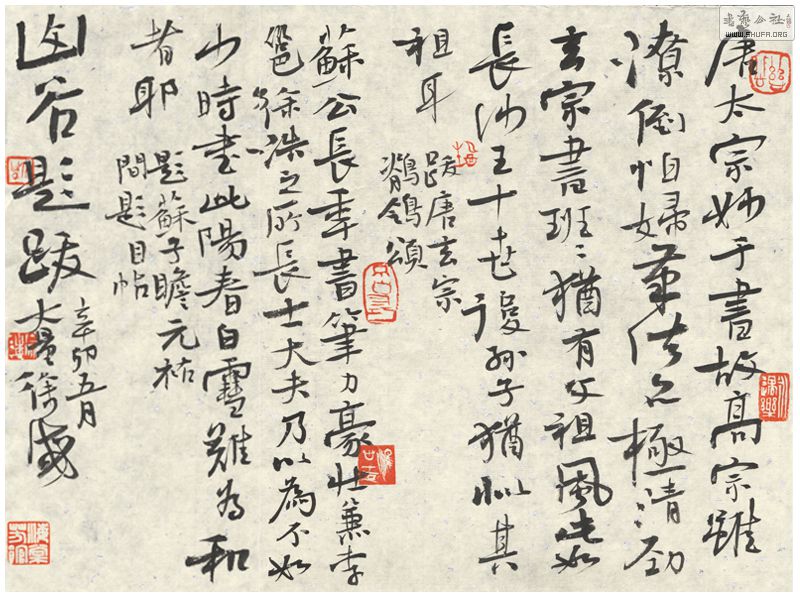 書法公社
WWW.SHUFA.ORG
唐太宗妙于書故高宗雖
潦倒怕婦筆法亦極清勁
玄宗書班〻猶有父祖風此如
長沙王十世後孫子猶似其
祖耳
跋唐玄宗
鶺鴒頌
蘇公長年書筆力豪壯兼李
邕徐浩之所長士大夫乃以為不如
少時書此陽春白雪難為和
者耶
題蘇子瞻元祐
間題目帖
山谷題跋
辛卯五月
徐